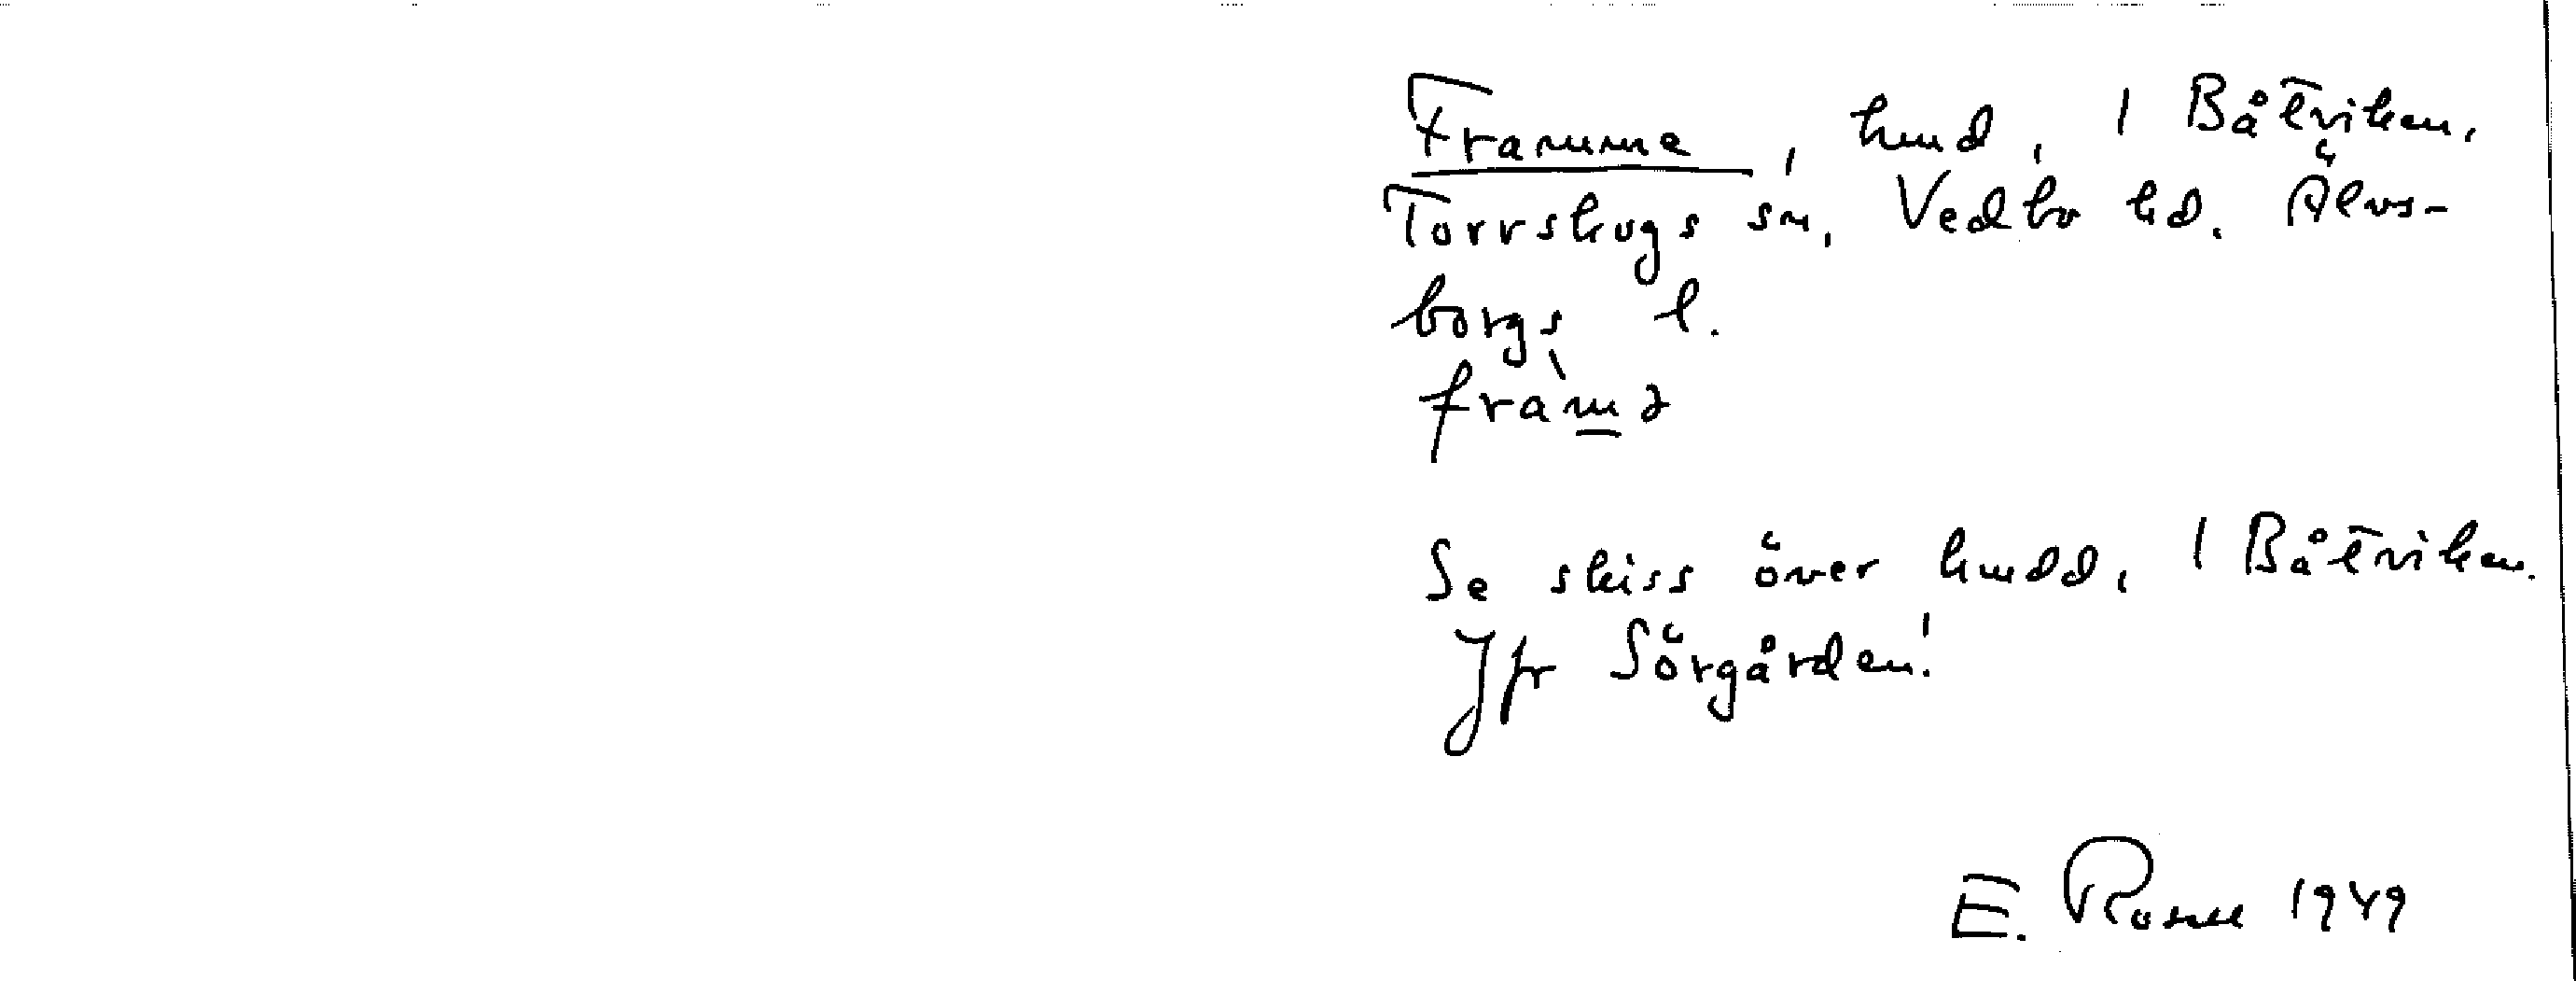 Framme, hmd, 1 Båtviken,
Torrskogs sn, Vedbo hd. Älvs-
borgs l.
fràmə
Se skiss över hmdd, 1 Båtviken.
Jfr Sörgården!
E. Rosell 1949